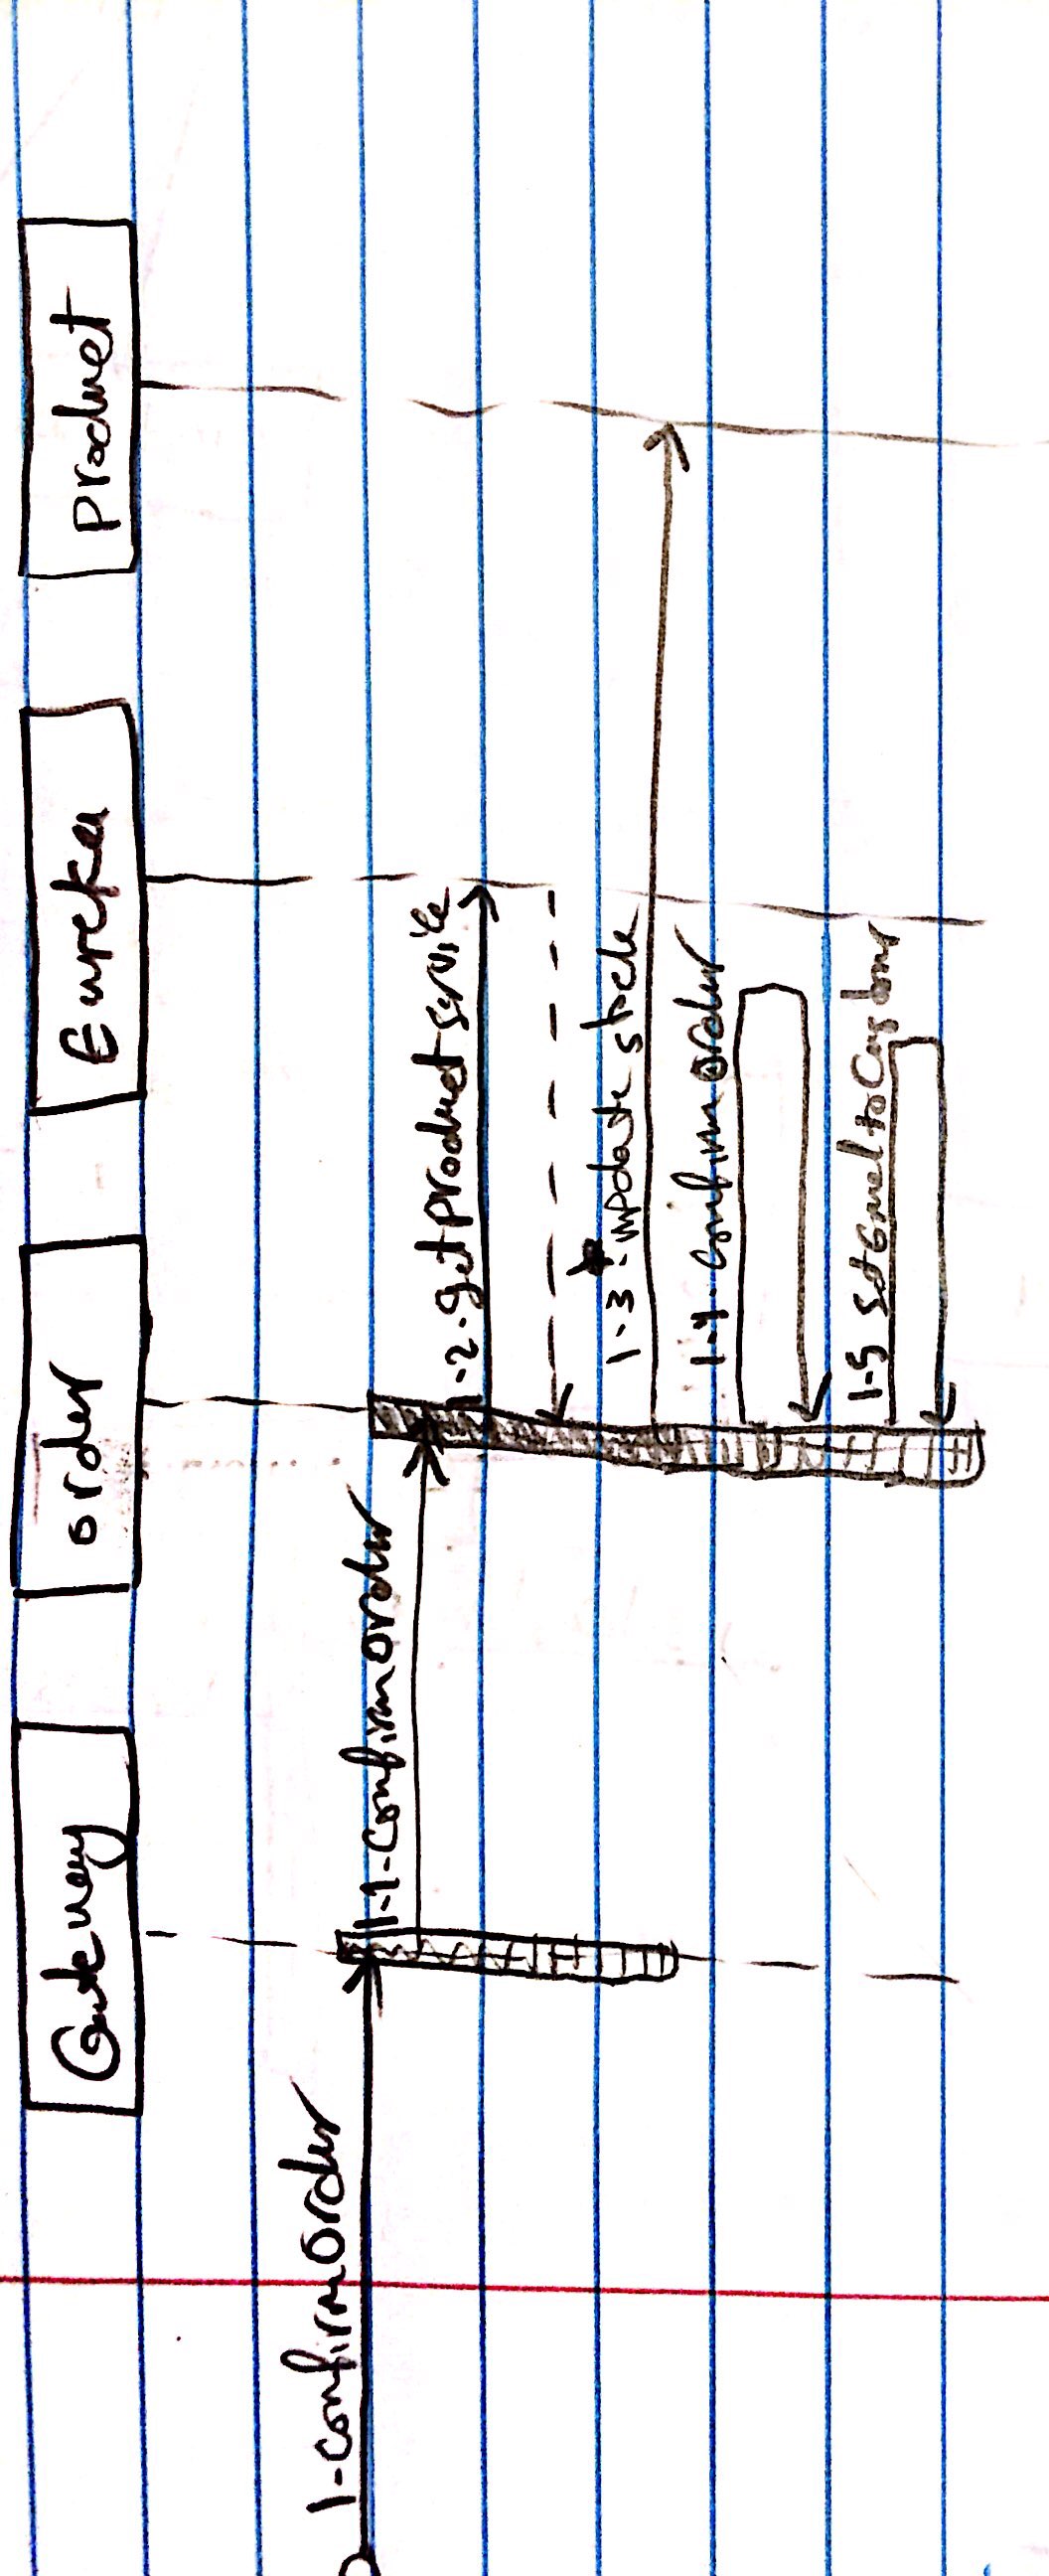 Gateway
order
Eureka
product
1-confirmOrder
1.1-confirmOrder
1.2.getproductservice
1.3.update stock
1.4.confirmOrder
1.5 SetEmailtoCustomer